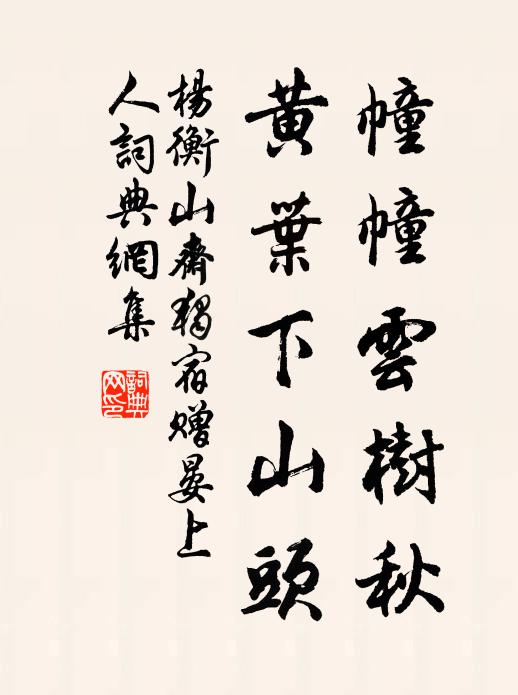 幢幢雲樹秋
黃葉下山頭
楊衡山齋獨宿贈晏上
人詞典網集
詞典網印